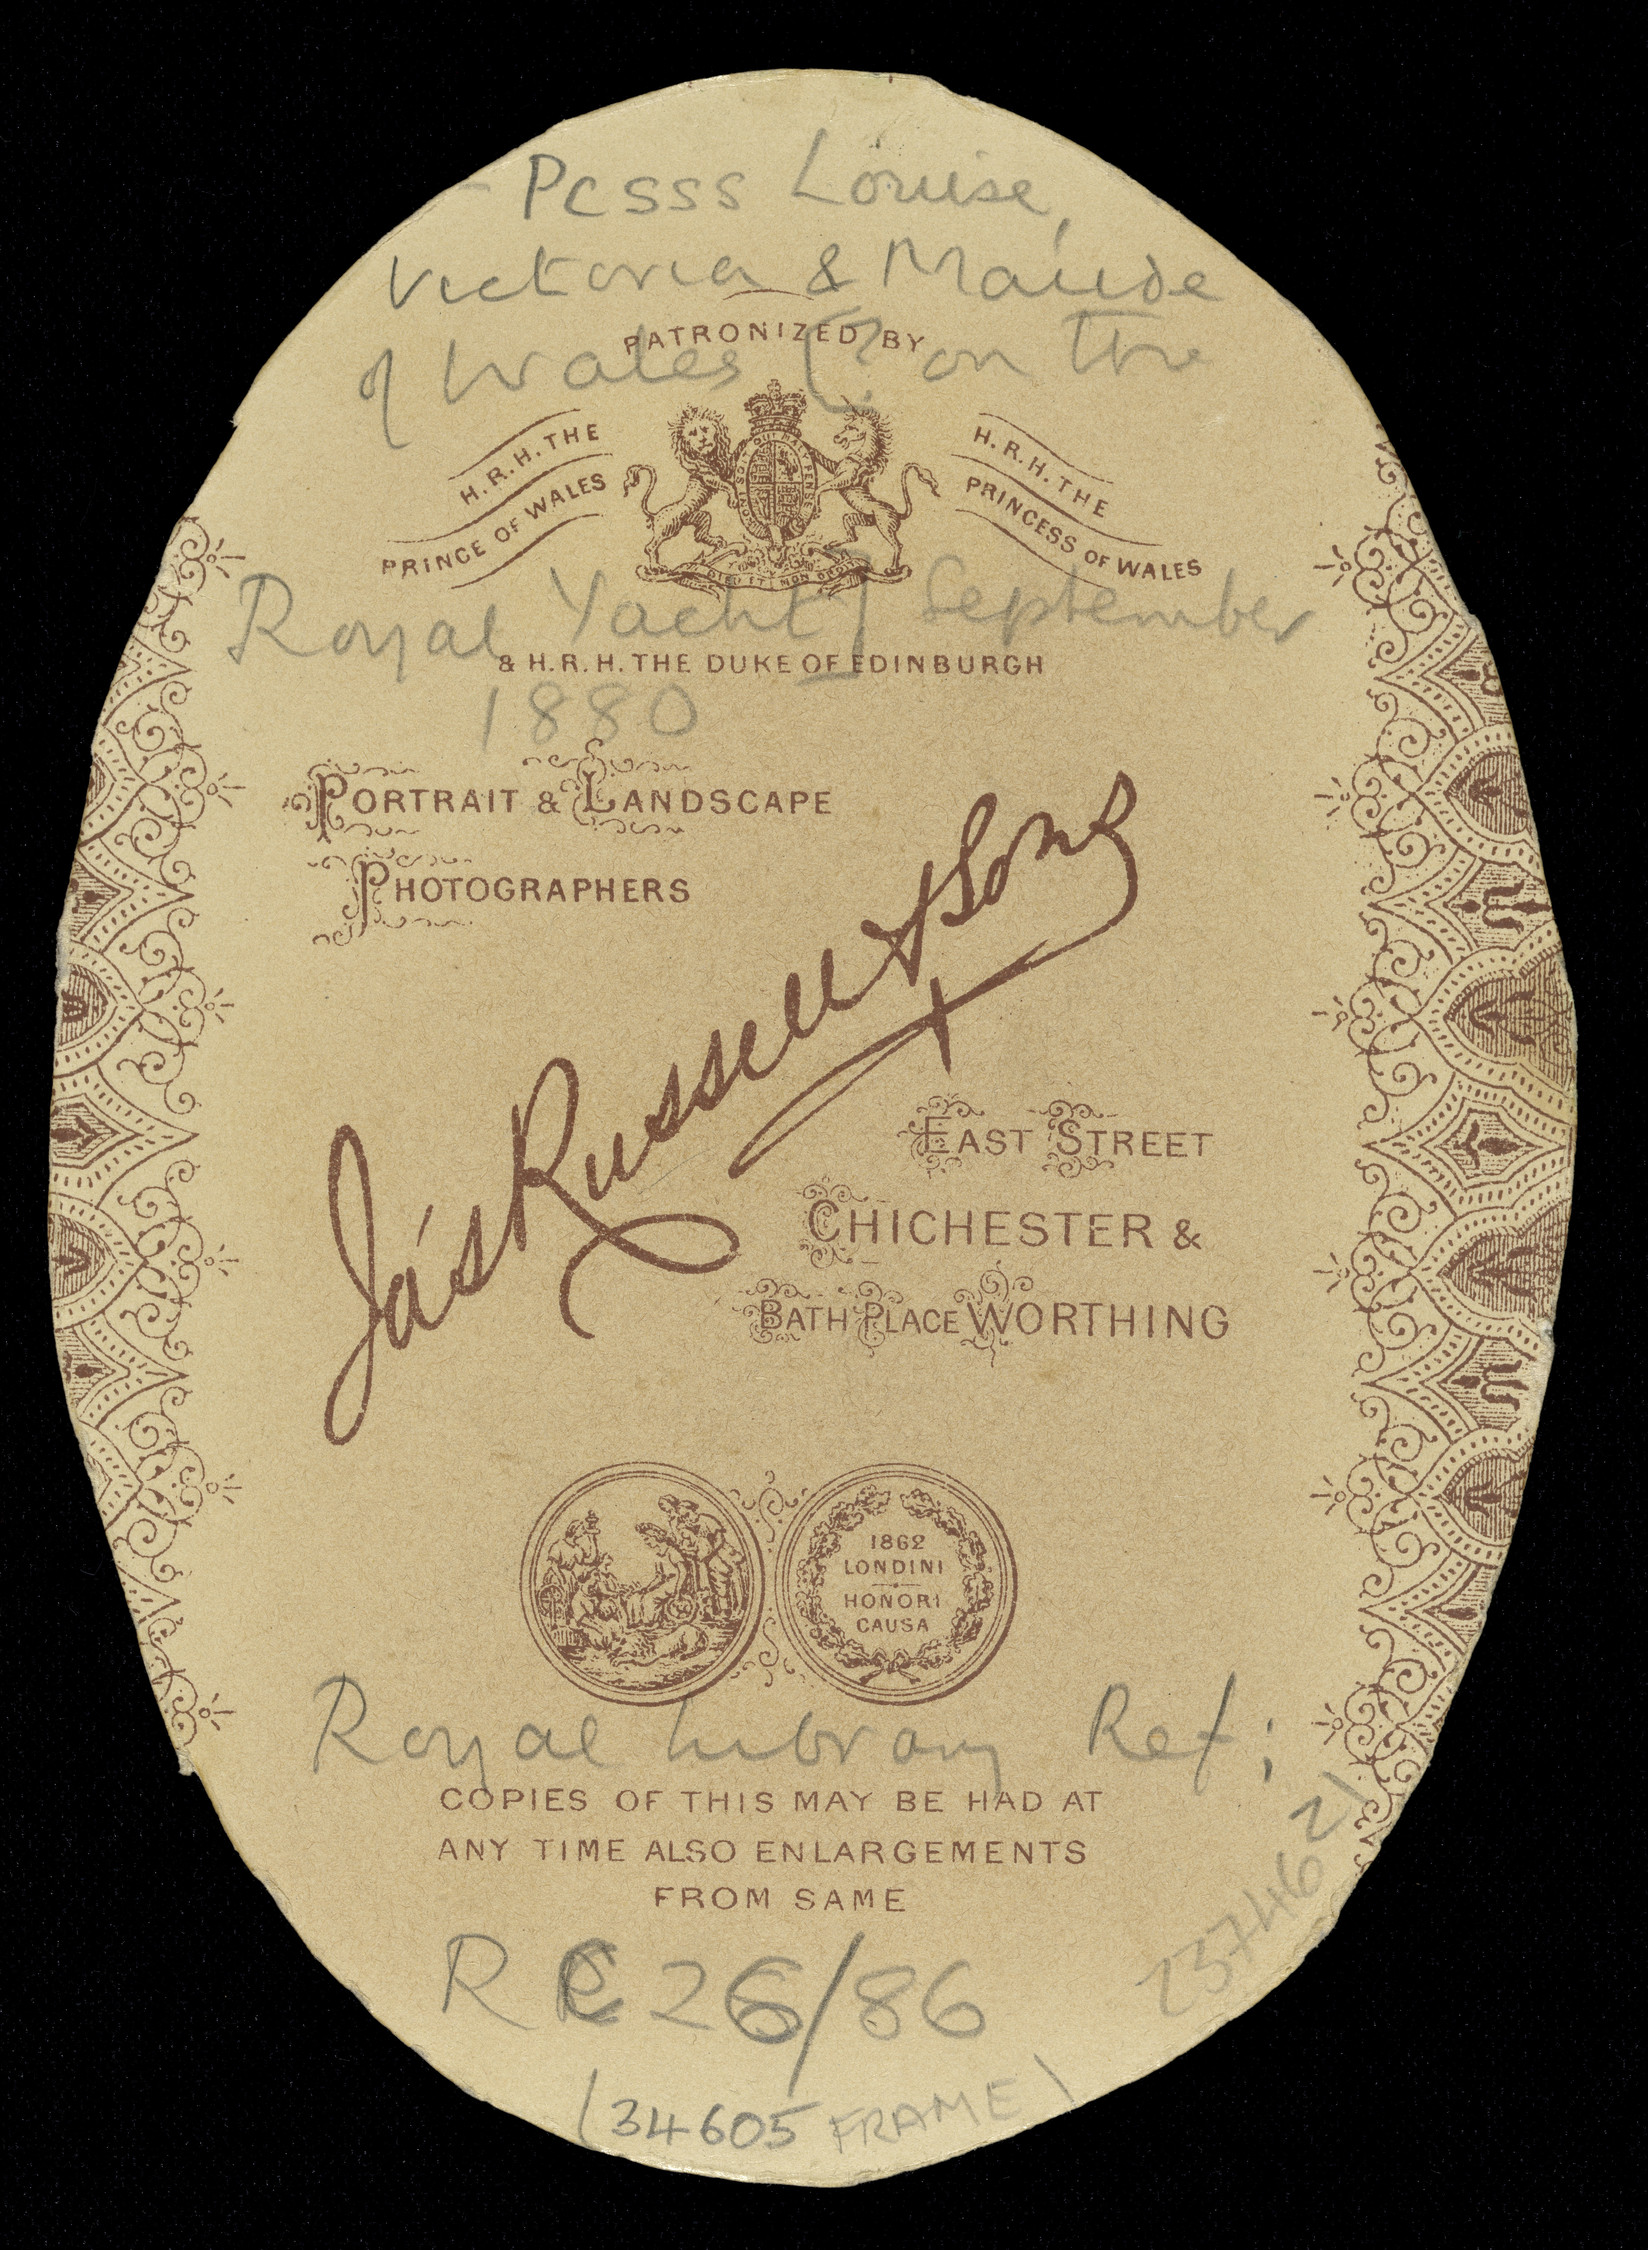 - Pcsss Louise,
Victoria & Maude
PATRONIZED BY
of Wales [? on the
H.R.H. THE
PRINCE OF WALES
H.R.H. THE
PRINCESS OF WALES
HONI SOIT QUI MAL Y PENSE
DIEU ET MON DROIT
Royal Yacht] September
& H.R.H. THE DUKE OF EDINBURGH
1880
PORTRAIT & LANDSCAPE
PHOTOGRAPHERS
Jas Russell & Sons
EAST STREET
CHICHESTER &
BATH PLACE WORTHING
1862
LONDINI
HONORI
CAUSA
Royal Library Ref;
COPIES OF THIS MAY BE HAD AT
ANY TIME ALSO ENLARGEMENTS
FROM SAME
2374621
R C 26/86
(34605 FRAME)